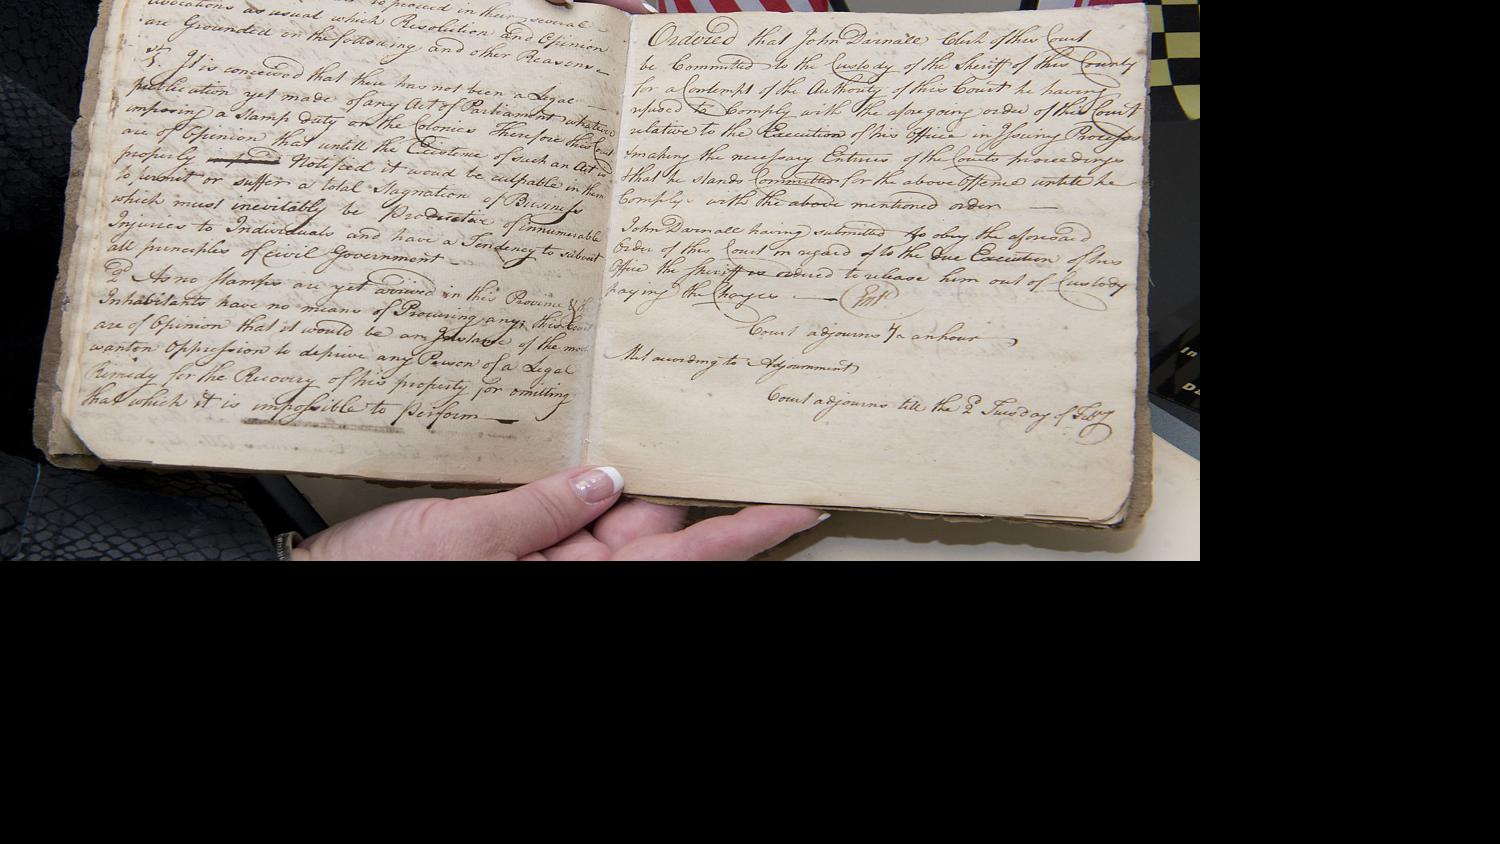 to proceed in their several
avocations as usual which Resolution and Opinion
are Grounded on the following and other Reasons
1st. It is conceived that there has not been a Legal
publication yet made of any Act of Parliament whatever
imposing a Stamp duty on the Colonies Therefore this Court
are of Opinion that untill the Existence of such an Act is
properly Notifyed it woud be culpable in them
to permit or suffer a total Stagnation of Business
which must inevitably be Productive of innumerable
Injuries to Individuals and have a Tendency to subvert
all principles of Civil Government
2d. As no Stamps are yet arrived in this Province & the
Inhabitants have no means of Procuring any, this Court
are of Opinion that it would be an Instance of the most
wanton Oppression to deprive any Person of a Legal
Remedy for the Recovery of his property for omitting
that which it is impossible to Perform
Ordered that John Darnall Clerk of this Court
be Committed to the Custody of the Sheriff of this County
for a Contempt of the Authority of this Court he having
refused to Comply with the aforegoing order of this Court
relative to the Execution of his Office in Issuing Process
& making the necessary Entries of the Courts proceedings
& that he stands Committed for the above Offence untill he
Comply with the above mentioned order
John Darnall having submitted to obey the aforesaid
Order of this Court in regard of to the due Execution of his
Office the Sheriff is ordered to release him out of Custody
paying the Charges Entd
Court adjourns 1/2 an hour
Met according to Adjournment
Court adjourns till the 2d Tuesday of Febry
In